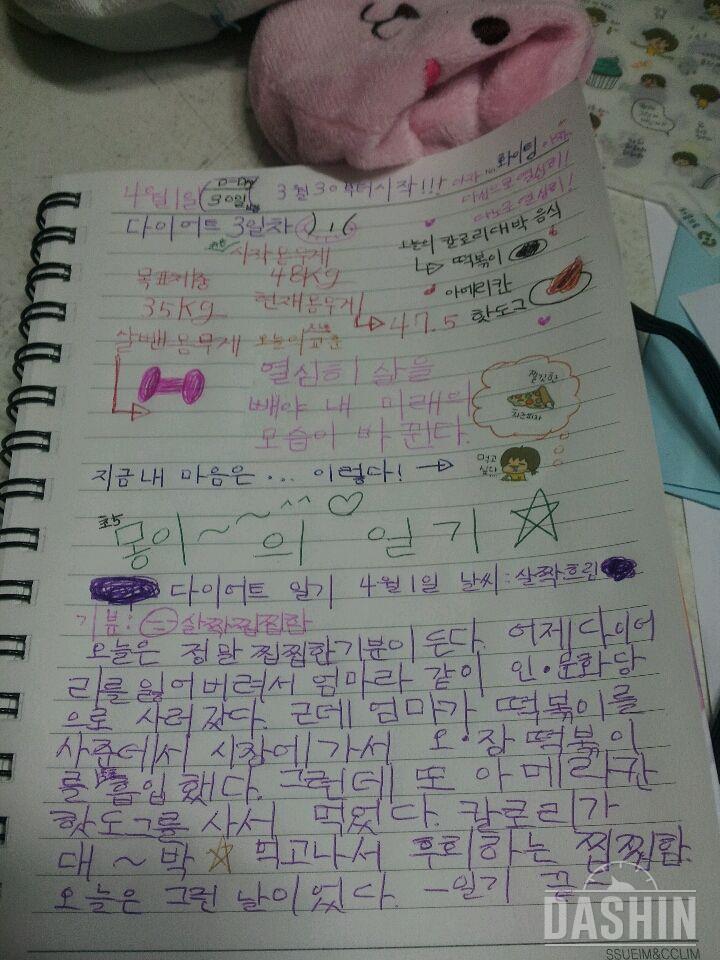 4월1일 (D-Day 30일) 3월30부터시작!!! 아자 화이팅 아자
다음으로열심히!
다이어트 3일차
오늘의 칼로리대박 음식
시작몸무게
떡볶이
목표체중 48kg
아메리칸
35kg 현재몸무게
핫도그
47.5
살뺀몸무게 오늘의교훈
열심히 살을
빼야 내 미래의
모습이 바뀐다.
쫄깃한
치즈피자
지금내 마음은... 이렇다!
먹고
싶다
초5
몽이~~^^♡의 일기☆
다이어트 일기 4월1일 날씨:살짝흐린
기분: 살짝찝찝함
오늘은 정말 찝찝한기분이 든다. 어제다이어
리를 잃어버려서 엄마랑 같이 인·문화당
으로 사러갔다. 근데 엄마가 떡볶이를
사준데서 시장에가서 오·장떡볶이
를 흡입했다. 그런데 또 아메리칸
핫도그를 사서 먹었다. 칼로리가
대~박☆ 먹고나서 후회하는 찝찝함.
오늘은 그런 날이었다. -일기 끝-
DASHIN
SSUEIM&CCLIM